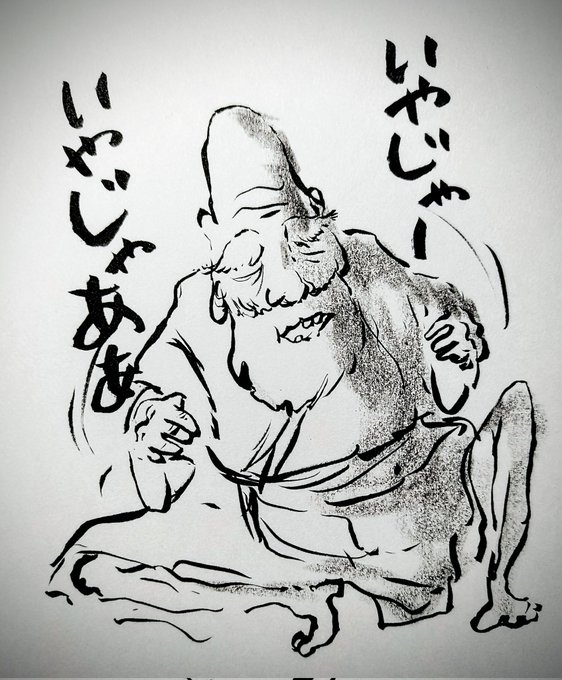 いやじゃー
いやじゃああ